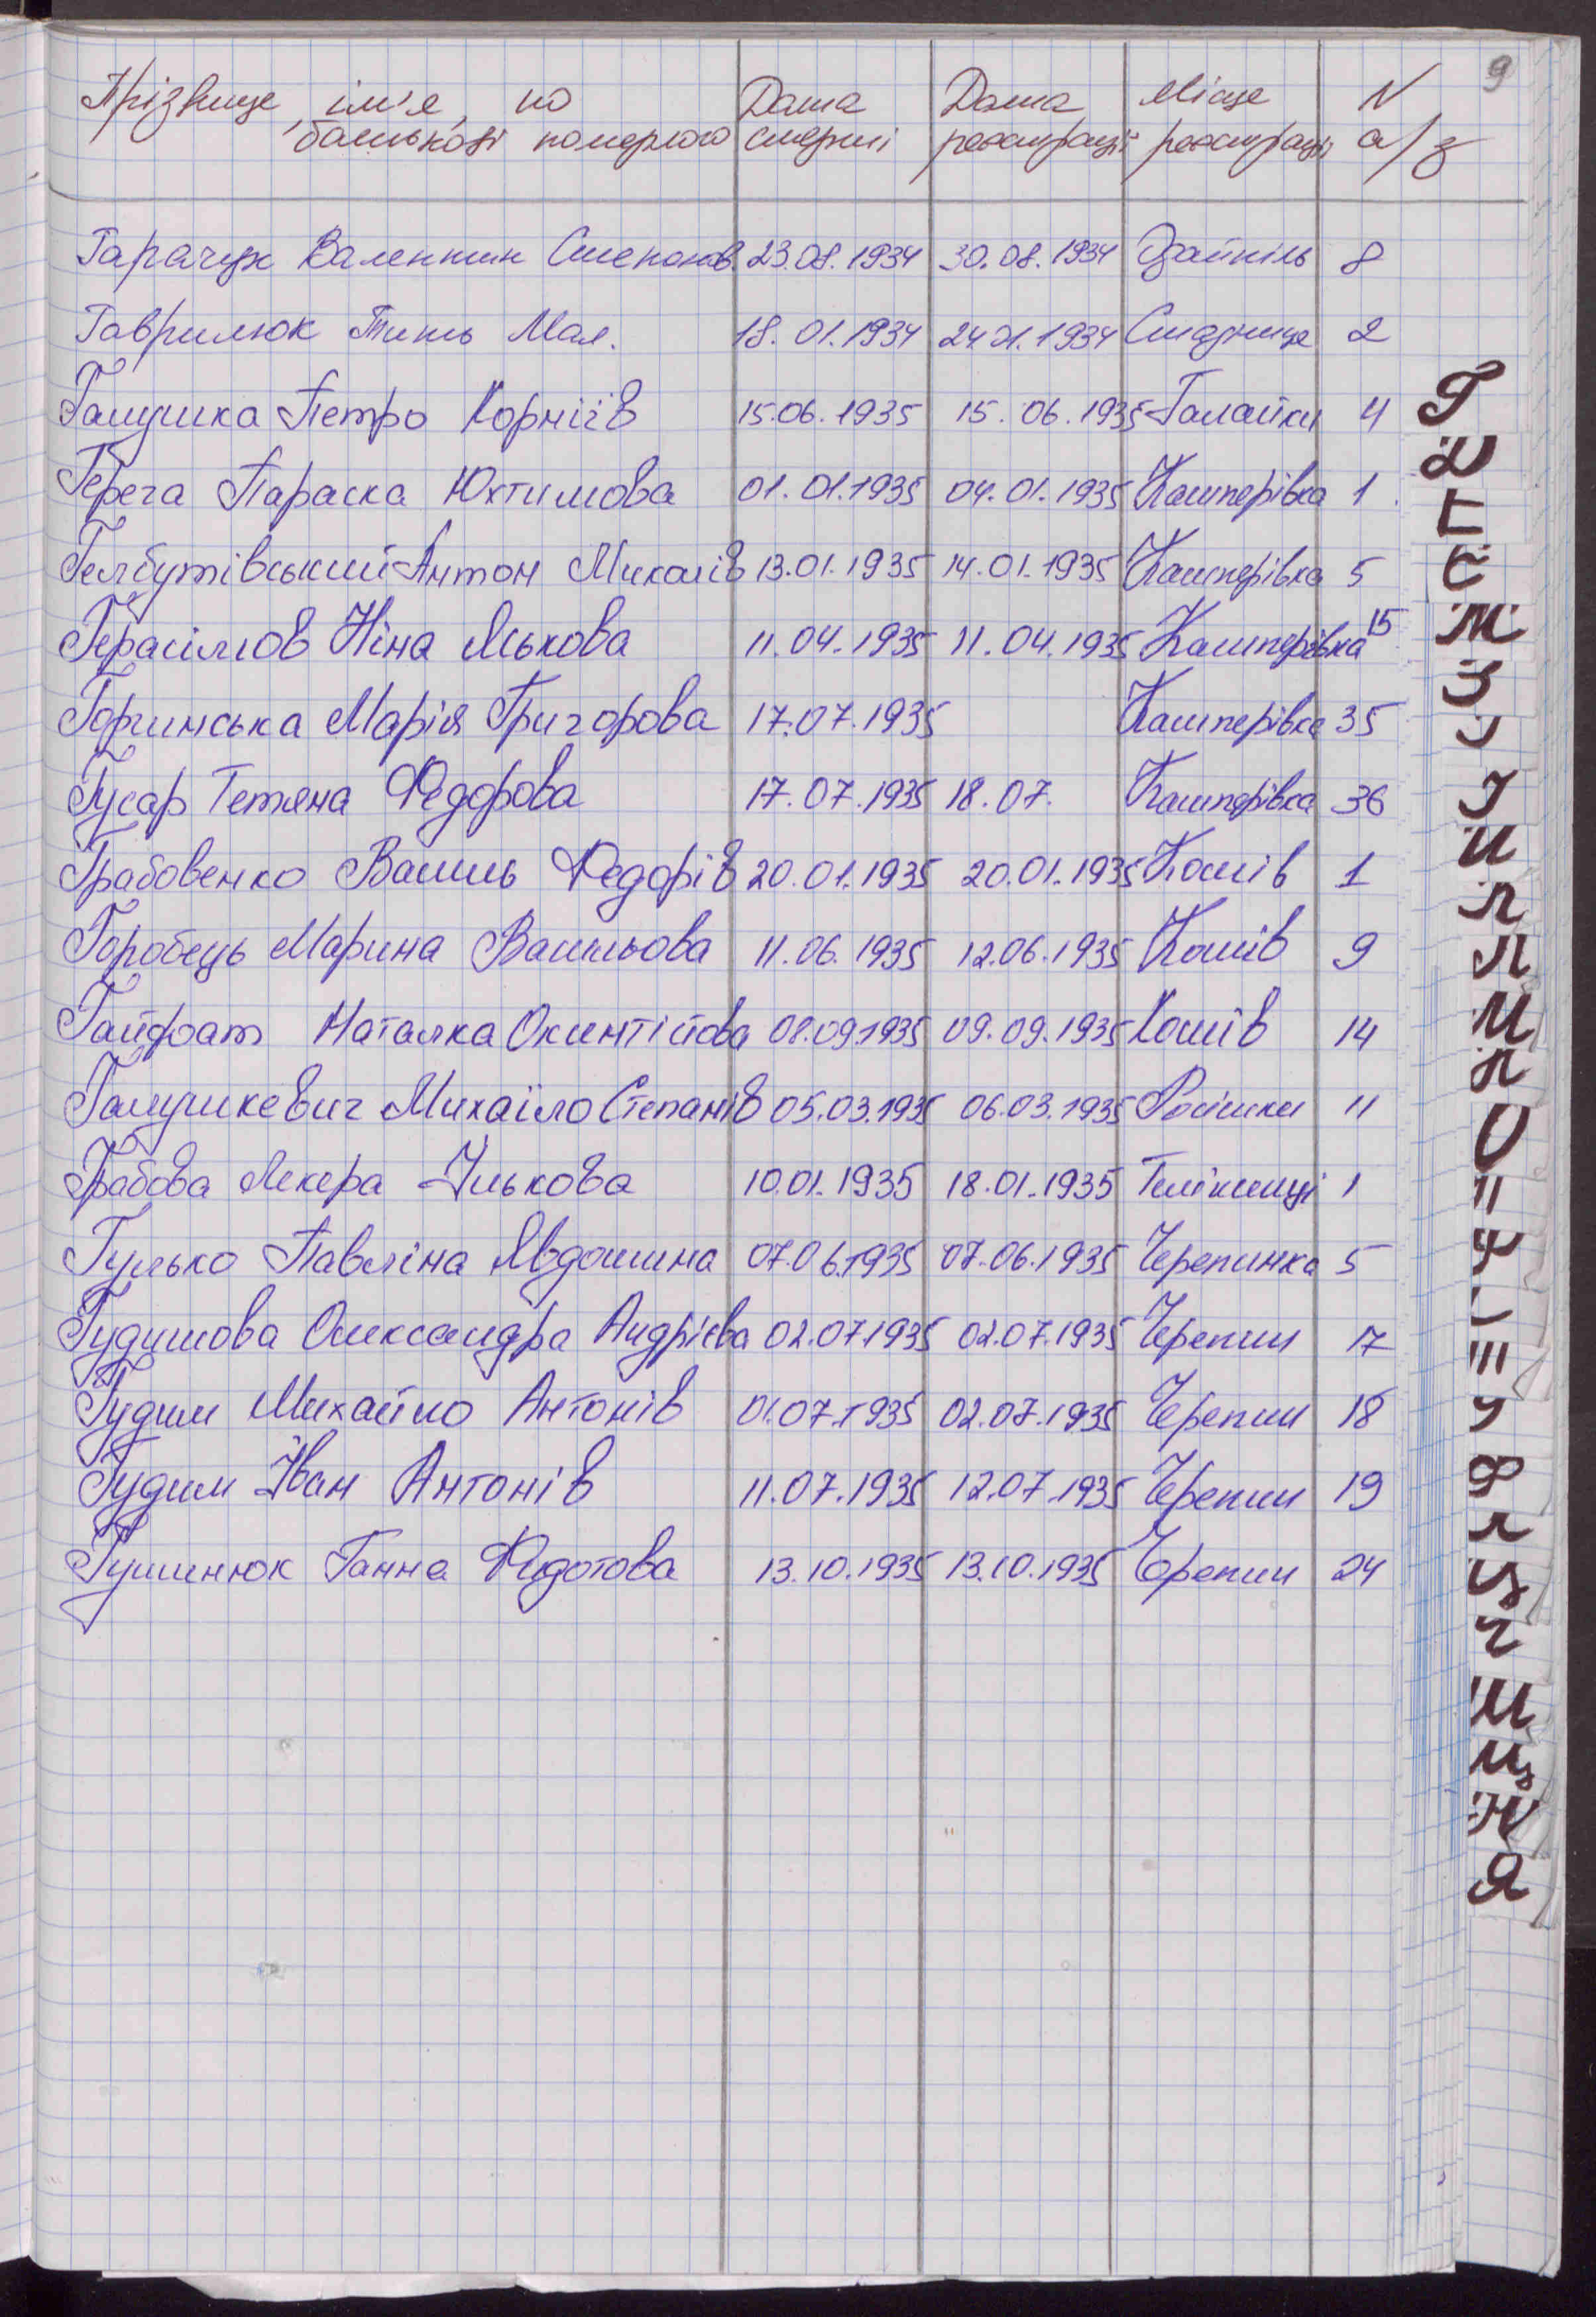 9
Прізвище, ім'я, по батькові померлого Дата смерті Дата реєстрації Місце реєстрації N а/з
Гарачук Валентин Степанов. 23.08.1934 30.08.1934 8
Гаврилюк Тить Мал. 18.01.1934 24.01.1934 Стадниця 2
Галушка Петро Корніїв 15.06.1935 15.06.1935 Галайки 4
Герега Параска Юхтимова 01.01.1935 04.01.1935 Кашперівка 1
Гелбутівський Антон Миколів 13.01.1935 14.01.1935 Кашперівка 5
Герасімов Ніна Яськова 11.04.1935 11.04.1935 Кашперівка 15
Горчинська Марія Григорова 17.07.1935 Кашперівка 35
Гусар Тетяна Федорова 17.07.1935 18.07. Кашперівка 36
Грабовенко Василь Федорів 20.01.1935 20.01.1935 Кошів 1
Горобець Марина Васильова 11.06.1935 12.06.1935 Кошів 9
Наталка 08.09.1935 09.09.1935 Кошів 14
Галушкевич Михаїло Степанів 05.03.1935 06.03.1935 Росішки 11
Грабова Лекера Ількова 10.01.1935 18.01.1935 Теліжинці 1
Гулько Павліна Явдошина 07.06.1935 07.06.1935 Черепинка 5
Гудимова Олександра Андрієва 02.07.1935 02.07.1935 Черепин 17
Гудим Михайло Антонів 01.07.1935 02.07.1935 Черепин 18
Гудим Іван Антонів 11.07.1935 12.07.1935 Черепин 19
Гушинюк Ганна Федотова 13.10.1935 13.10.1935 Черепин 24
Г
Д
Е
Є
Ж
З
І
Й
К
Л
М
Н
О
П
У
Ф
Х
Ц
Ч
Ш
Щ
Ю
Я